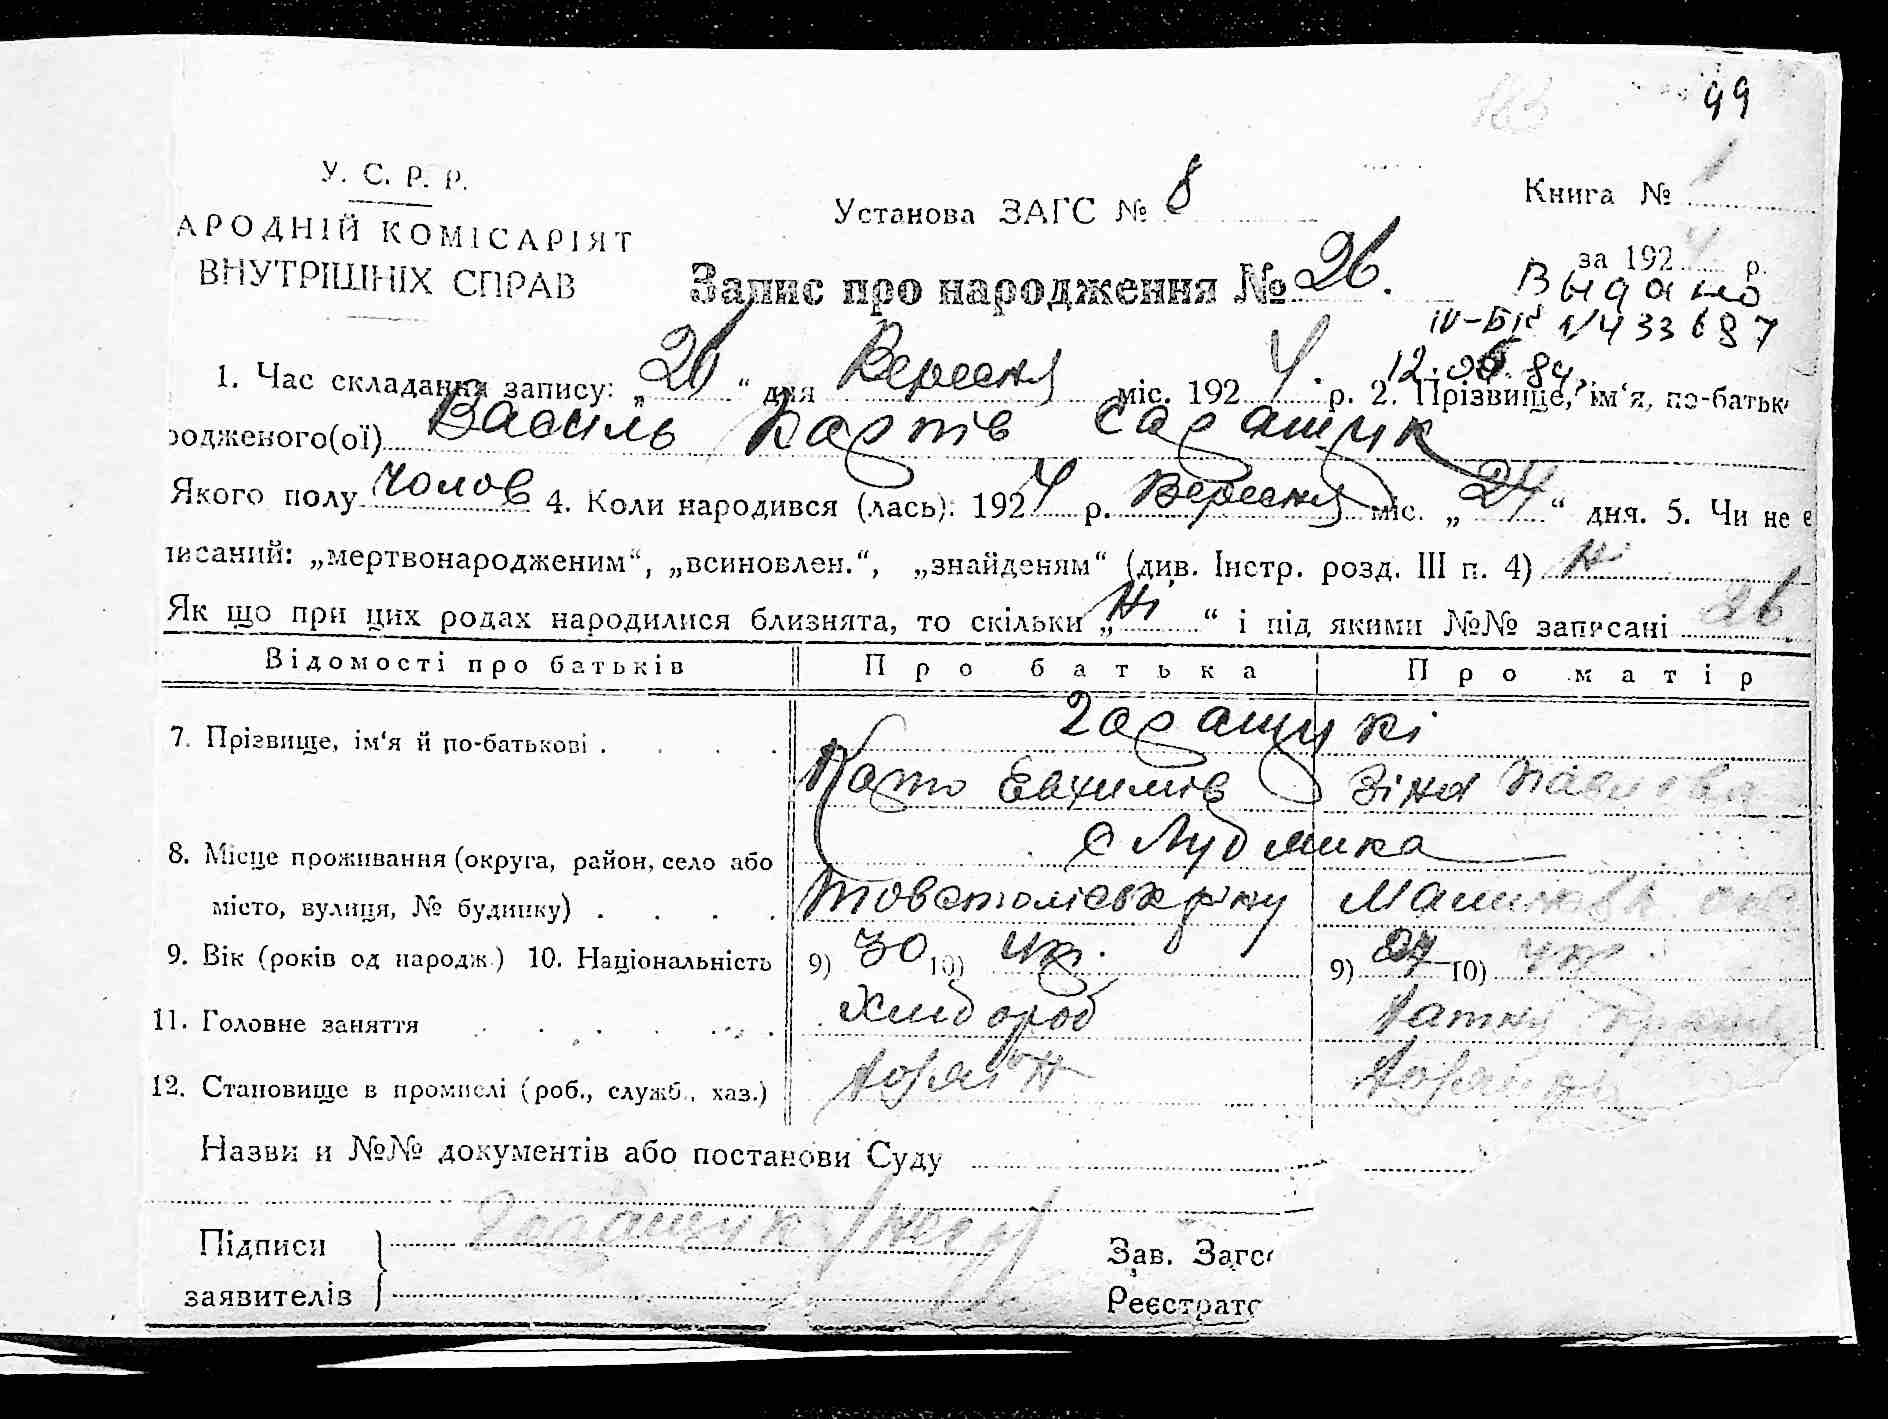 99
183
У. С. Р. Р.
АРОДНІЙ КОМІСАРІЯТ
ВНУТРІШНІХ СПРАВ
Установа ЗАГС № 8
Книга № 1
за 1924 р.
Запис про народження № 26.
Выдано
IV-БК № 433687
12.06.84.
1. Час складання запису: „26“ дня Вересня міс. 1924 р. 2. Прізвище, ім‘я, по-батьк
родженого(ої) Василь Карпів Гаращук
Якого полу чолов 4. Коли народився (лась): 1924 р. Вересня міс. „24“ дня. 5. Чи не є
писаний: „мертвонародженим“, „всиновлен.“, „знайденям“ (див. Інстр. розд. III п. 4) н
Як що при цих родах народилися близнята, то скільки „ні“ і під якими №№ записані 26
Відомості про батьків Про батька Про матір
7. Прізвище, ім‘я й по-батькові . . . . Гаращукі
Карпо Евхимів Зіна Павлова
8. Місце проживання (округа, район, село або с Лудвмика
місто, вулиця, № будинку) . . . .
9. Вік (років од народж.) 10. Національність 9) 30 10) Ук. 9) 24 10) Ук
11. Головне заняття . . . . . Хлібороб Хатня
12. Становище в промислі (роб., служб., хаз.) Хозяїн Хозяйка
Назви и №№ документів або постанови Суду
Підписи Гаращук
заявителів
Зав. Загс
Реєстрато